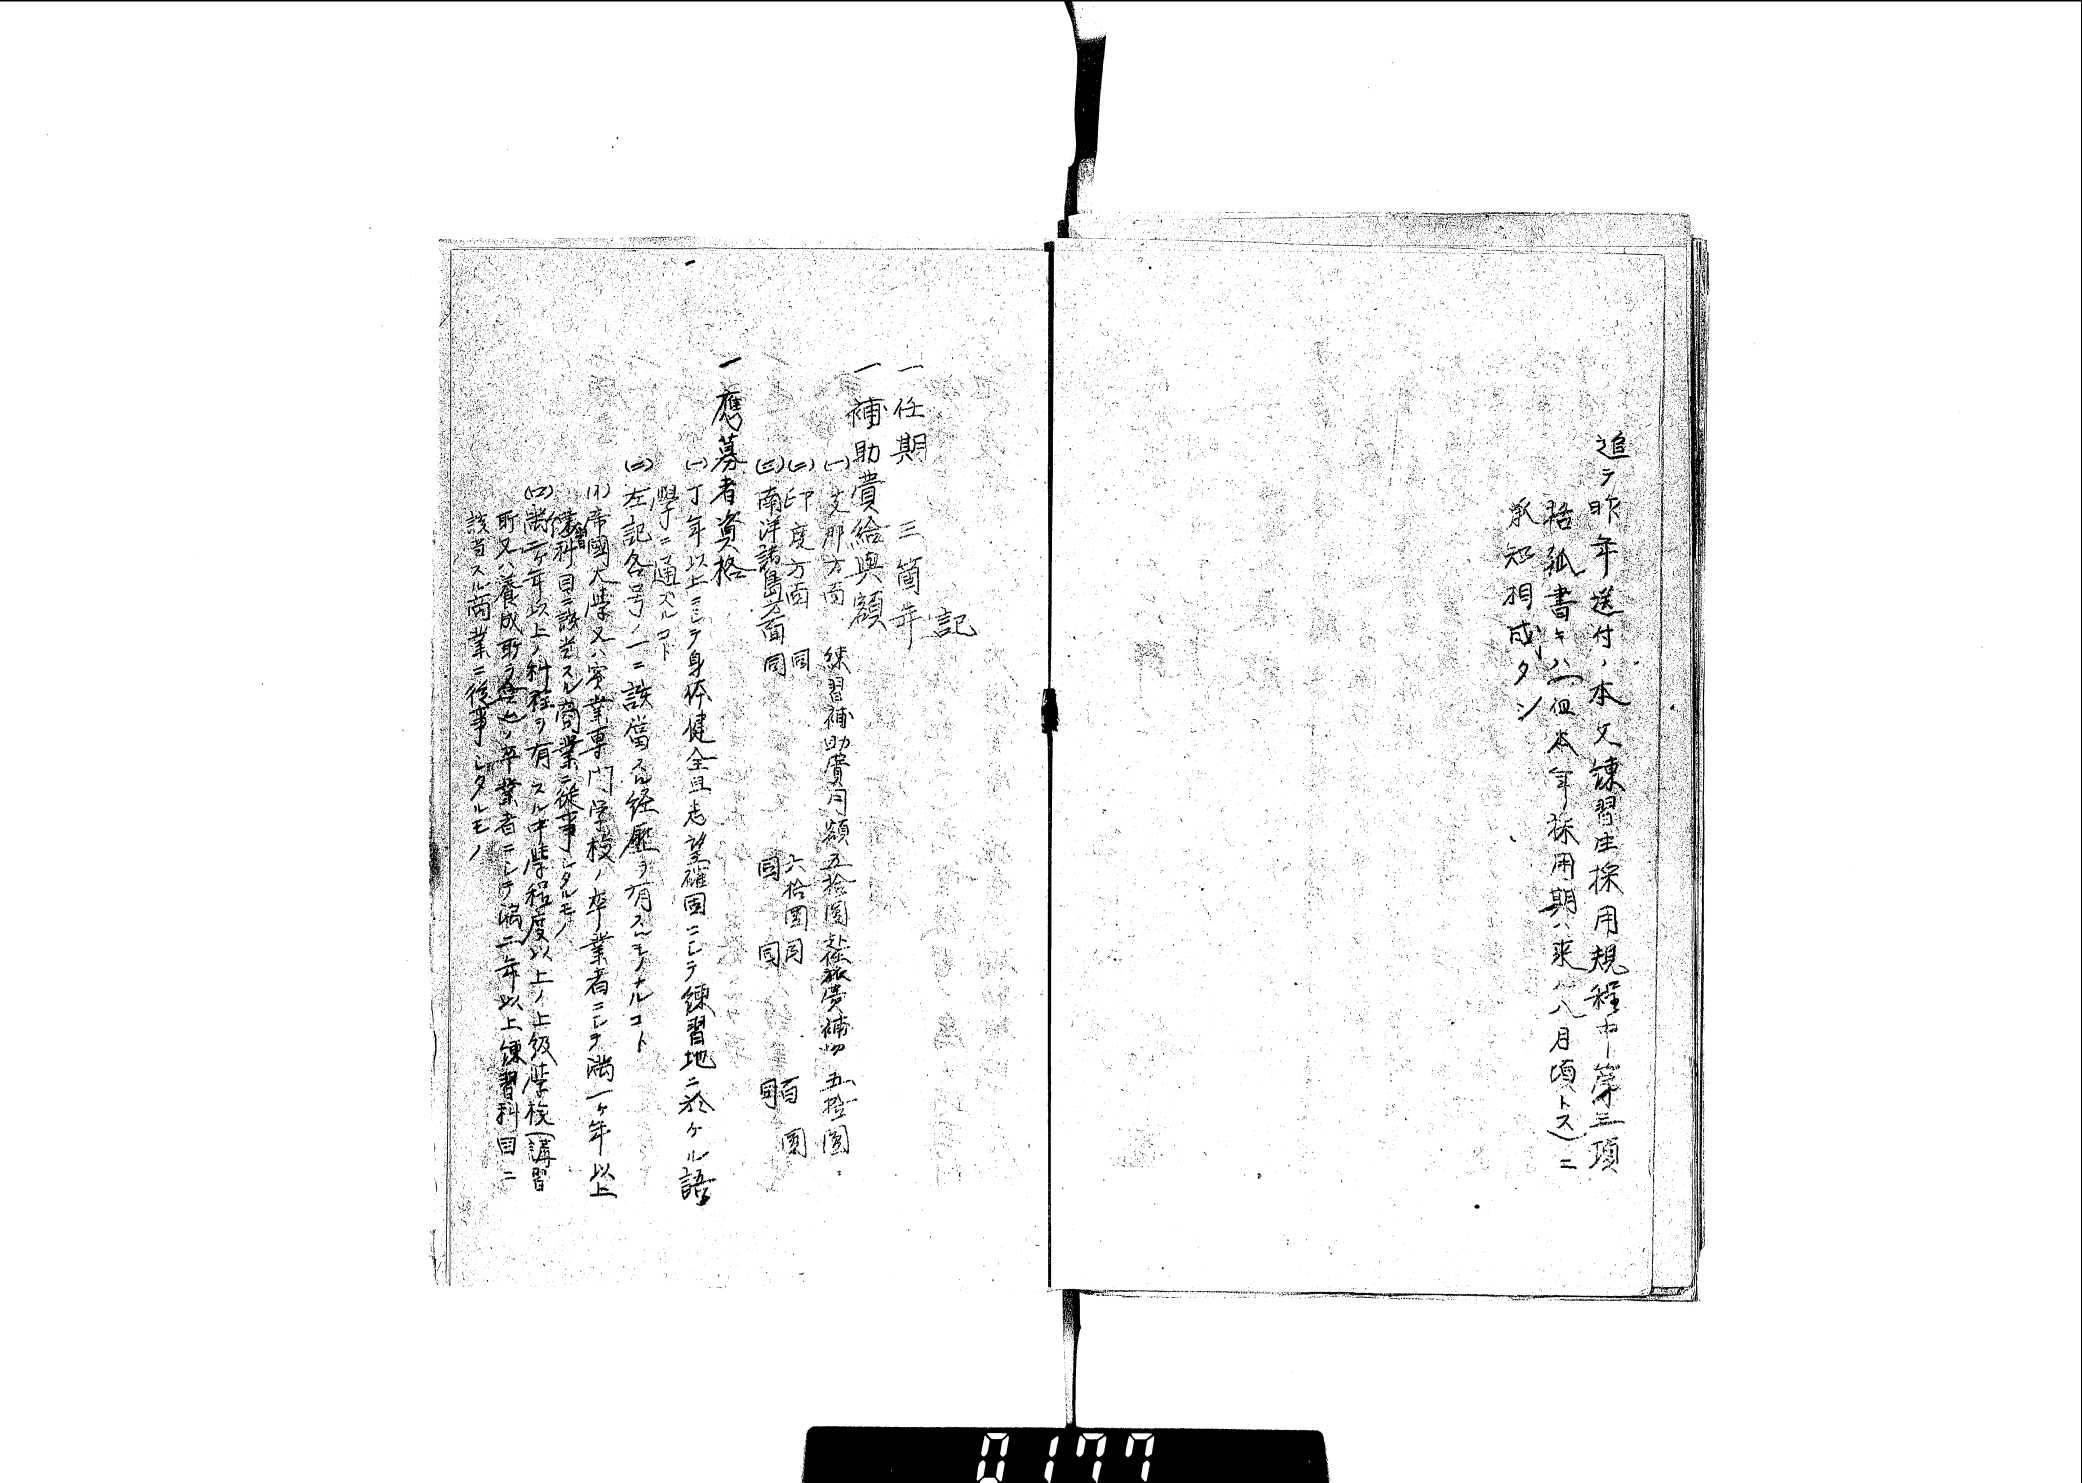 追テ昨年送付ノ本文練習生採用規程中第三項
括弧書キハ(但本年ノ採用期ハ來ル八月頃トス)ニ
承知相成タシ
記
一任期 三箇年
一補助費給與額
(一)支那方面 練習補助費月額五拾圓 赴任旅費補助 五拾圓
(二)印度方面 同 六拾圓 同 百圓
(三)南洋諸島方面 同 同 同 同
一應募者資格
(一)丁年以上ニシテ身体健全且志望確固ニシテ練習地ニ於ケル語
學ニ通ズルコト
(二)左記各号ノ一ニ該當スル経歴ヲ有スルモノナルコト
(イ)帝國大學又ハ実業専門学校ノ卒業者ニシテ満一ヶ年以上
練習科目ニ該当スル商業ニ從事シタルモノ
(ロ)満二ヶ年以上ノ科程ヲ有スル中学程度以上ノ上級学校(講習
所又ハ養成所ヲ含ム)ノ卒業者ニシテ満二年以上練習科目ニ
該当スル商業ニ從事シタルモノ
0177